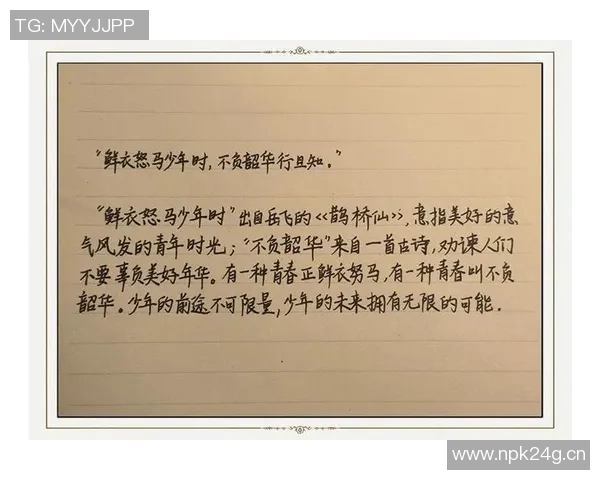 TG: MYYJJPP
“鲜衣怒马少年时，不负韶华行且知。”
“鲜衣怒马少年时”出自岳飞的《鹊桥仙》，意指美好的意
气风发的青年时光；“不负韶华”来自一首古诗，劝谏人们
不要辜负美好年华。有一种青春正鲜衣努马，有一种青春叫不负
韶华。少年的前途不可限量，少年的未来拥有无限的可能．
www.npk24g.cn